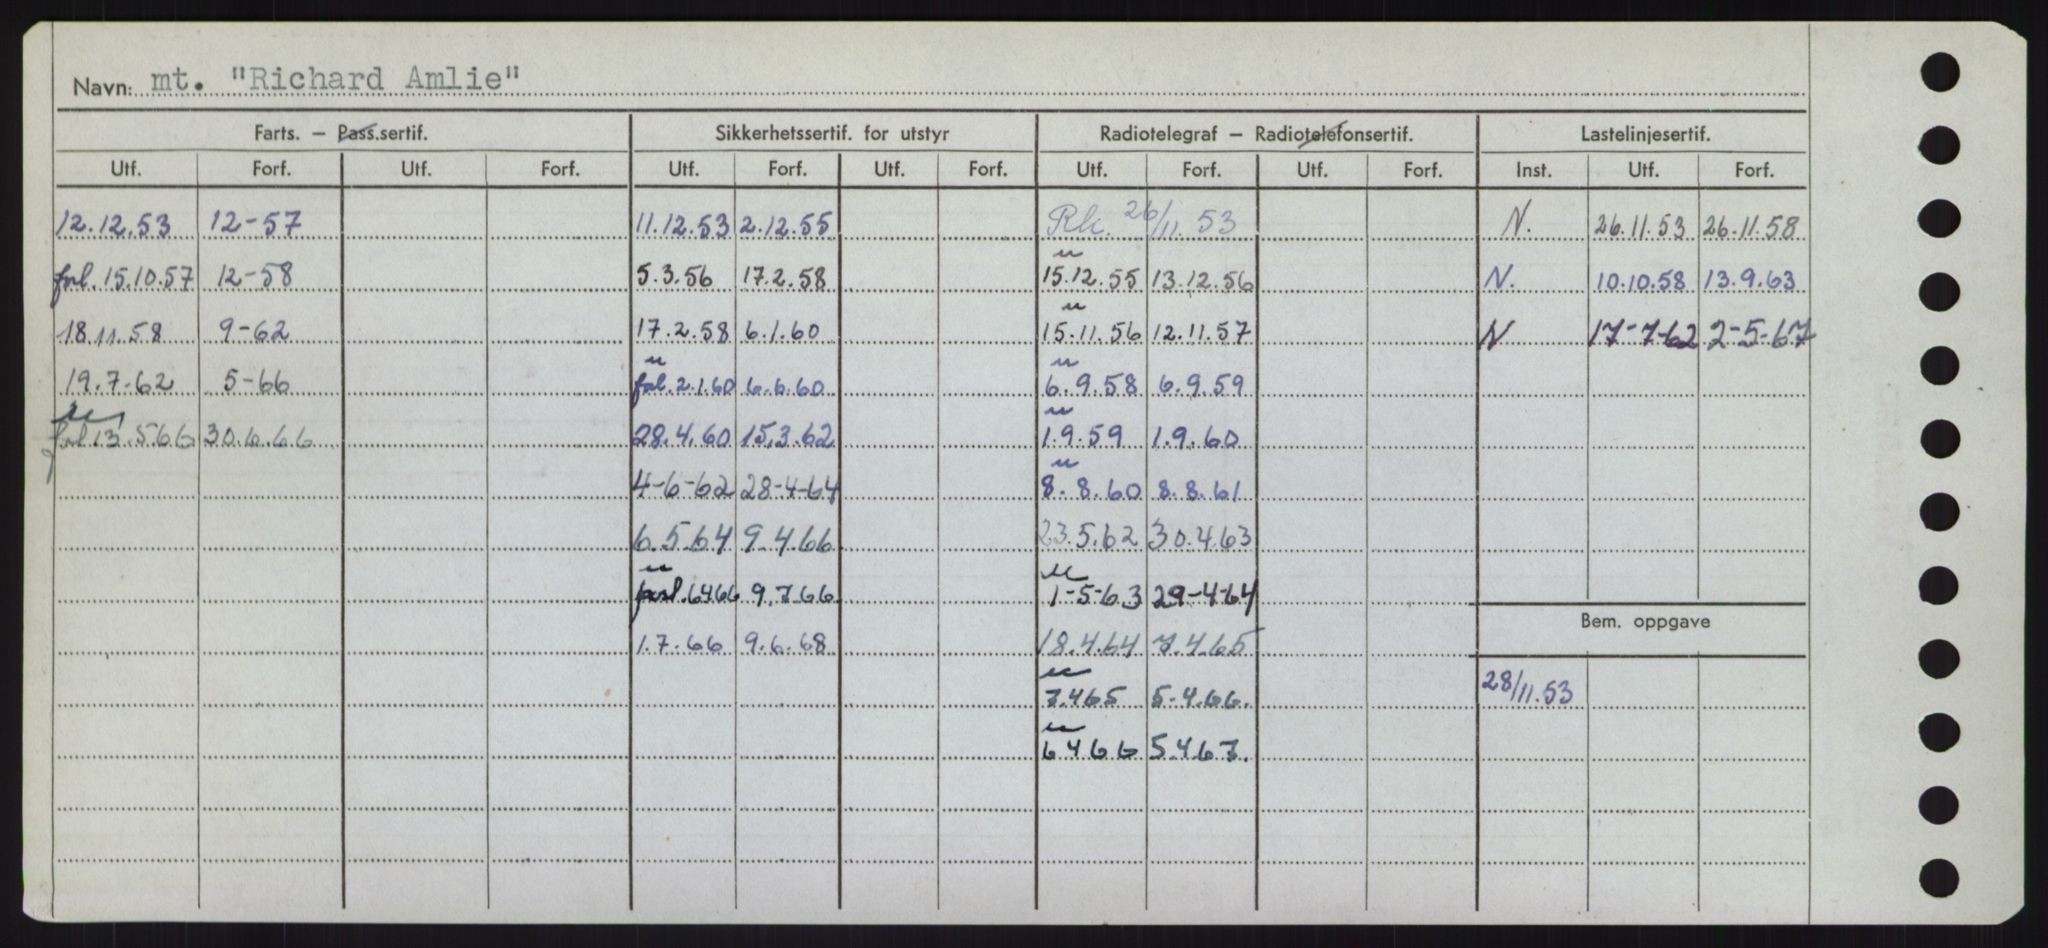 Navn: mt. "Richard Amlie"
Farts. – Pass.sertif. Sikkerhetssertif. for utstyr Radiotelegraf – Radiotelefonsertif. Lastelinjesertif.
Utf. Forf. Utf. Forf. Utf. Forf. Utf. Forf. Utf. Forf. Utf. Forf. Inst. Utf. Forf.
12.12.53 12-57 11.12.53 2.12.55 Rk. 26/11.53 N. 26.11.53 26.11.58
fol. 15.10.57 12-58 5.3.56 17.2.58 u 15.12.55 13.12.56 N. 10.10.58 13.9.63
18.11.58 9-62 17.2.58 6.1.60 u 15.11.56 12.11.57 N 17-7-62 2-5-67
19.7-62 5-66 u fol. 2.1.60 6.6.60 u 6.9.58 6.9.59
u fol.13.5.66 30.6.66 28.4.60 15.3.62 u 1.9.59 1.9.60
4-6-62 28-4-64 u 8.8.60 8.8.61
6.5.64 9.4.66 23.5.62 30.4.63
u forl.6466 9.7.66 u 1-5-63 29-4-64
Bem. oppgave
1.7.66 9.6.68 18.4.64 7.4.65
u 7.465 5-4.66. 28/11.53
u 6466 5.4.67.